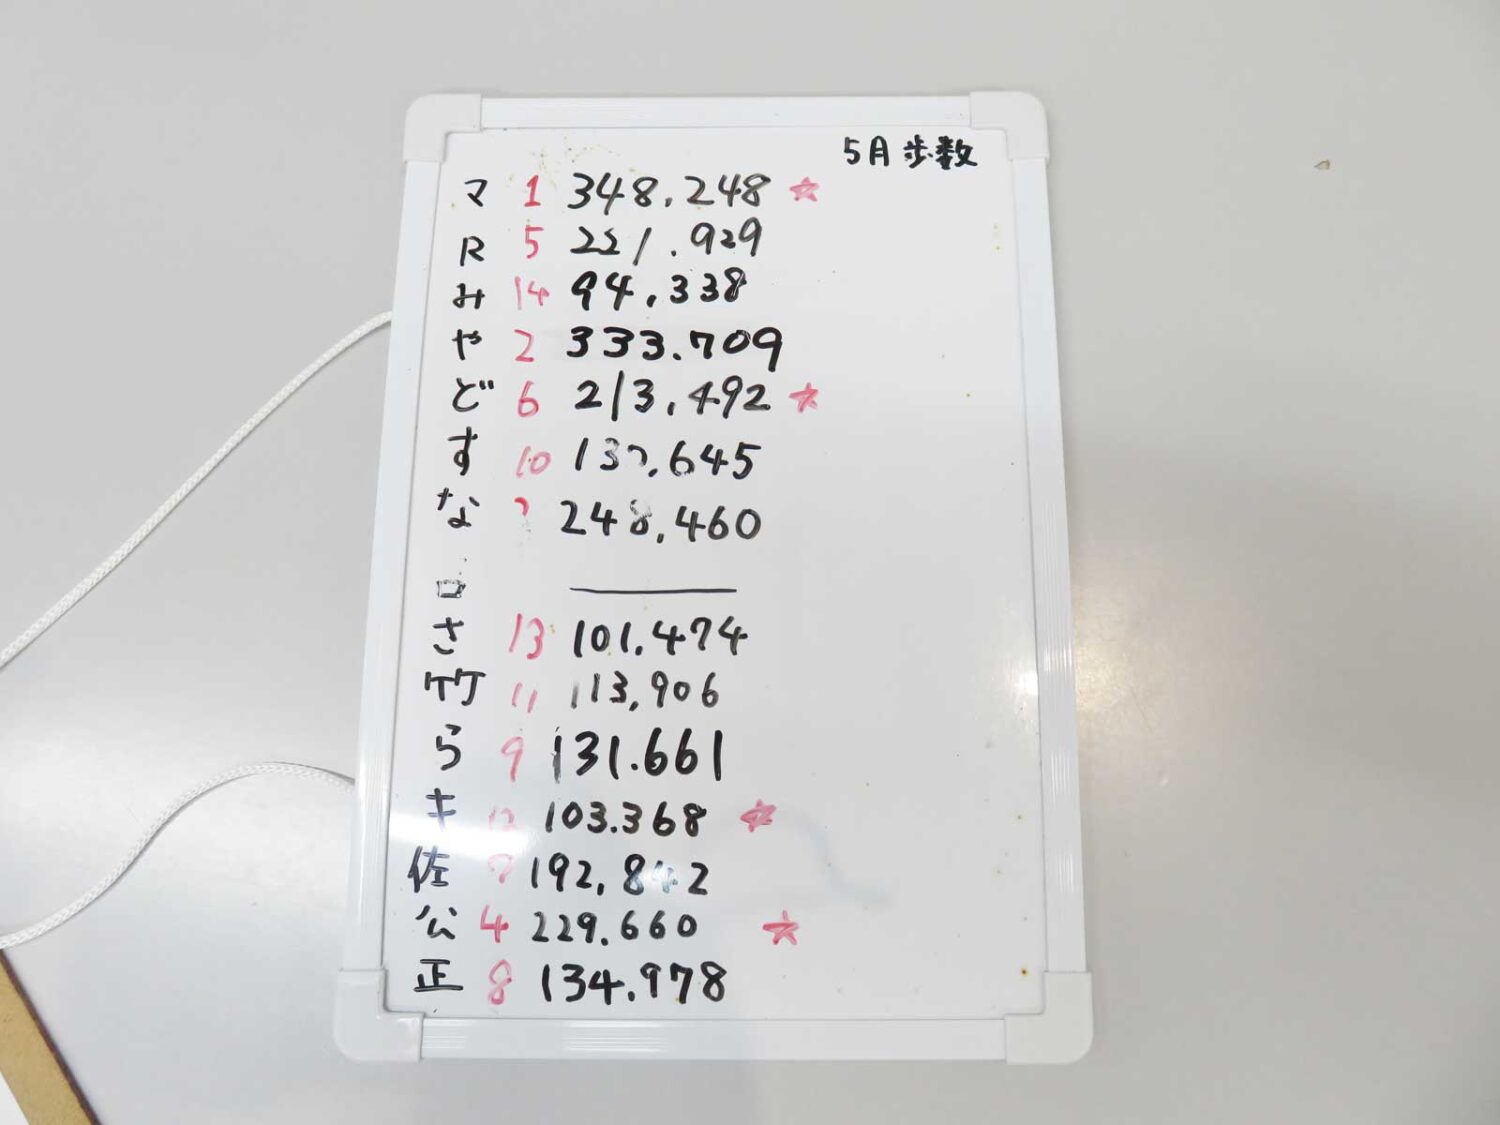 5月歩数
マ 1 348,248 ☆
R 5 221.929
み 14 94,338
や 2 333.709
ど 6 213,492 ☆
す 10 ,645
な 248,460
ロ
さ 13 101.474
竹 11 113,906
ら 9 131.661
キ 12 103.368 ☆
佐 7 192,842
公 4 229.660 ☆
正 8 134.978